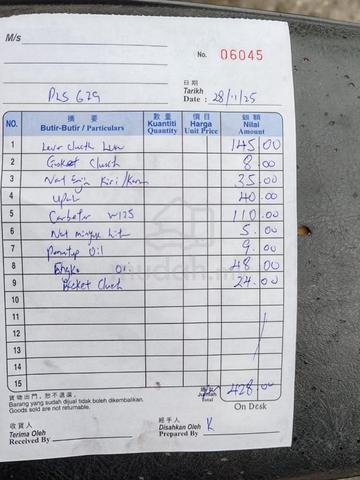 M/s
No. 06045
PLS 679
日期
Tarikh
Date : 28/11/25
NO. 摘要 Butir-Butir / Particulars 數量 Kuantiti Quantity 價目 Harga Unit Price 銀額 Nilai Amount
1 145.00
2 Gasket Clutch 8.00
3 Nat Enjin Kiri/Kanan 35.00
4 Upah 40.00
5 W125 110.00
6 Nat minyak hitam 5.00
7 Penutup Oil 9.00
8 Engko Oil 48.00
9 Clutch 24.00
10
11
12
13
14
15
Jumlah
Total 428.00
貨物出門,恕不退還。
Barang yang sudah dijual tidak boleh dikembalikan.
Goods sold are not returnable.
On Desk
收貨人
Terima Oleh
Received By
經手人
Disahkan Oleh
Prepared By K